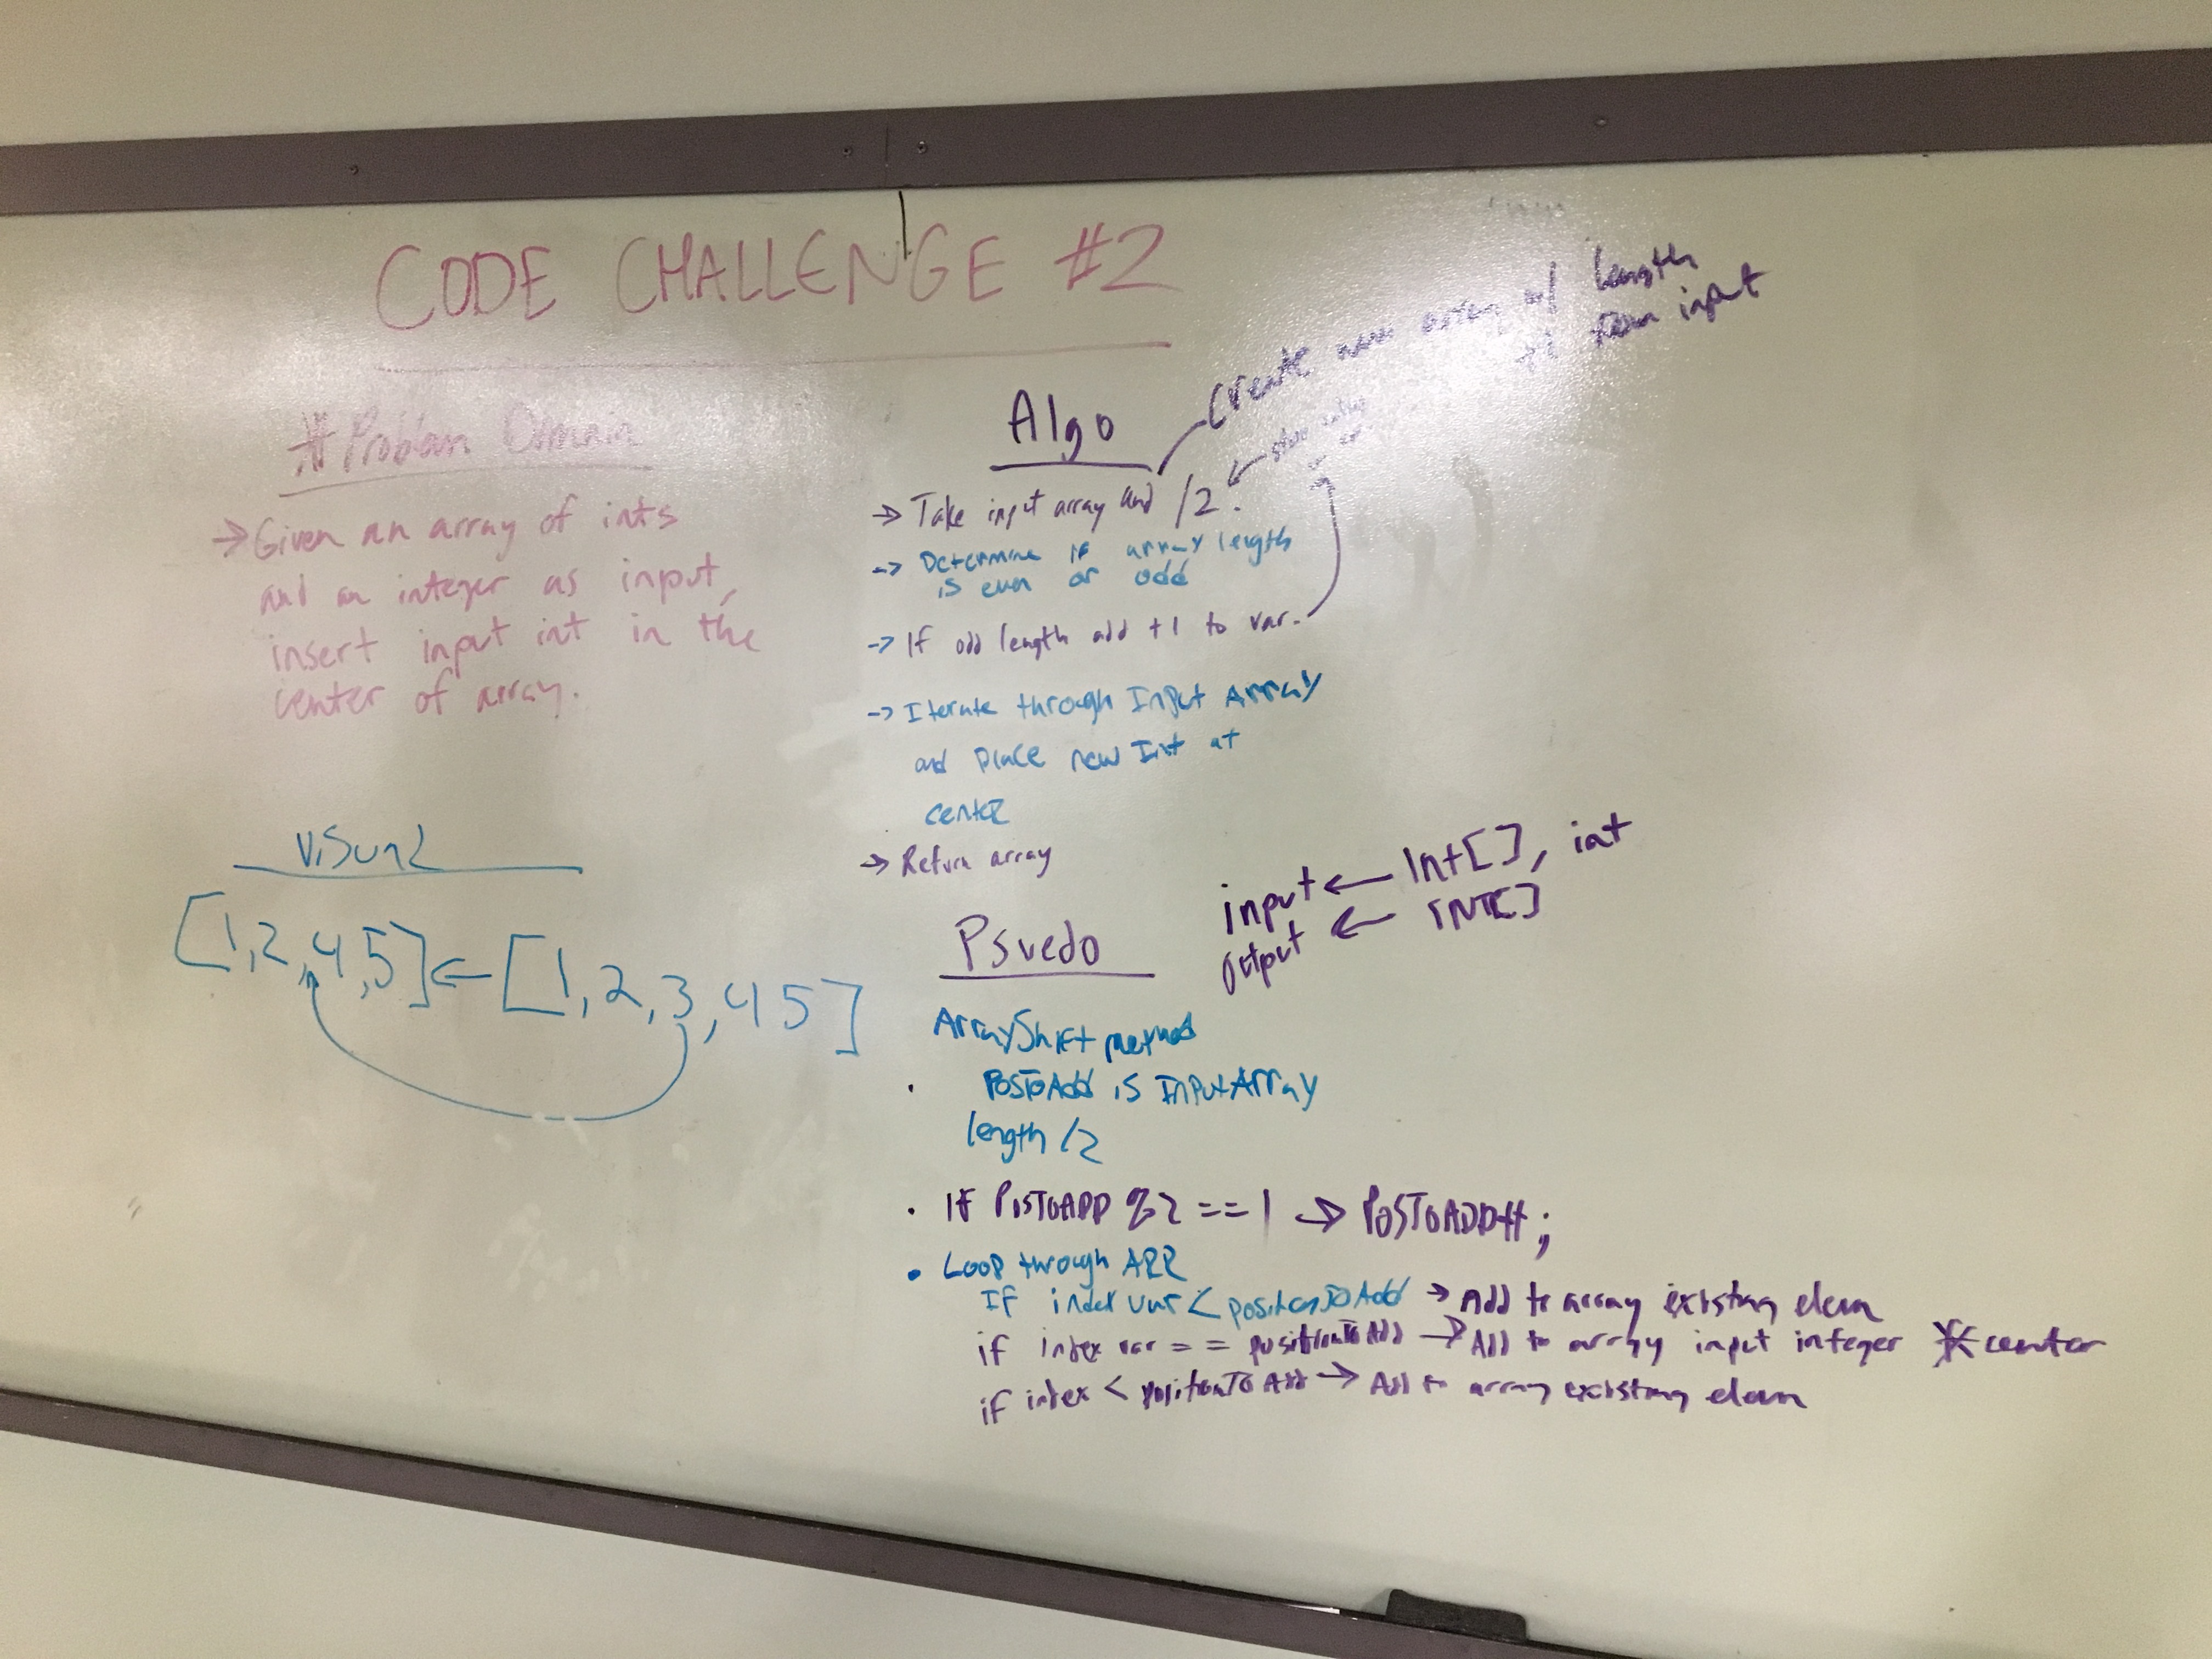 CODE CHALLENGE #2
# Problem Domain
→ Given an array of ints
and an integer as input,
insert input int in the
center of array.
Visual
[1,2,4,5] ← [1,2,3,4 5]
Algo
Create new array w/ length
+1 from input
→ Take input array and /2.
→ Determine if array length
is even or odd
→ If odd length add +1 to var.
→ Iterate through Input Array
and place new Int at
center
→ Return array
input ← Int[], int
output ← INT[]
Psuedo
ArrayShift method
· PosToAdd is InputArray
length /2
· If PosToADD %2 == 1 → PosToADD++;
• Loop through ARR
If index var < positionToAdd → Add to array existing elem
if index var == positionToAdd → Add to array input integer * center
if index < positionToAdd → Add to array existing elem